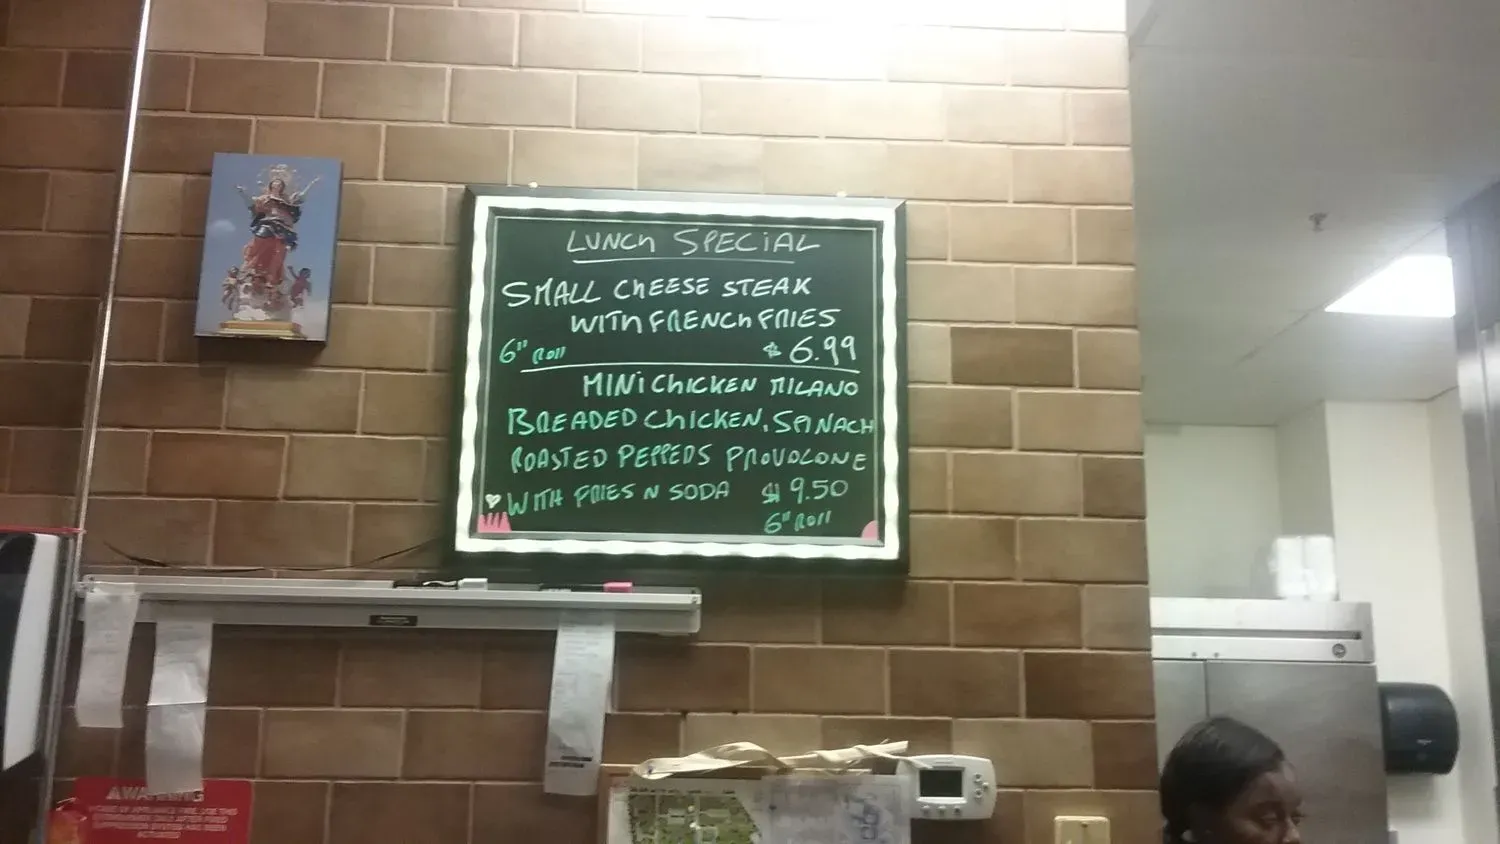 LUNCH SPECIAL
SMALL CHEESE STEAK
WITH FRENCH FRIES
6" ROLL $ 6.99
MINI CHICKEN MILANO
BREADED CHICKEN, SPINACH
ROASTED PEPPERS PROVOLONE
WITH FRIES N SODA $ 9.50
6" ROLL
WARNING